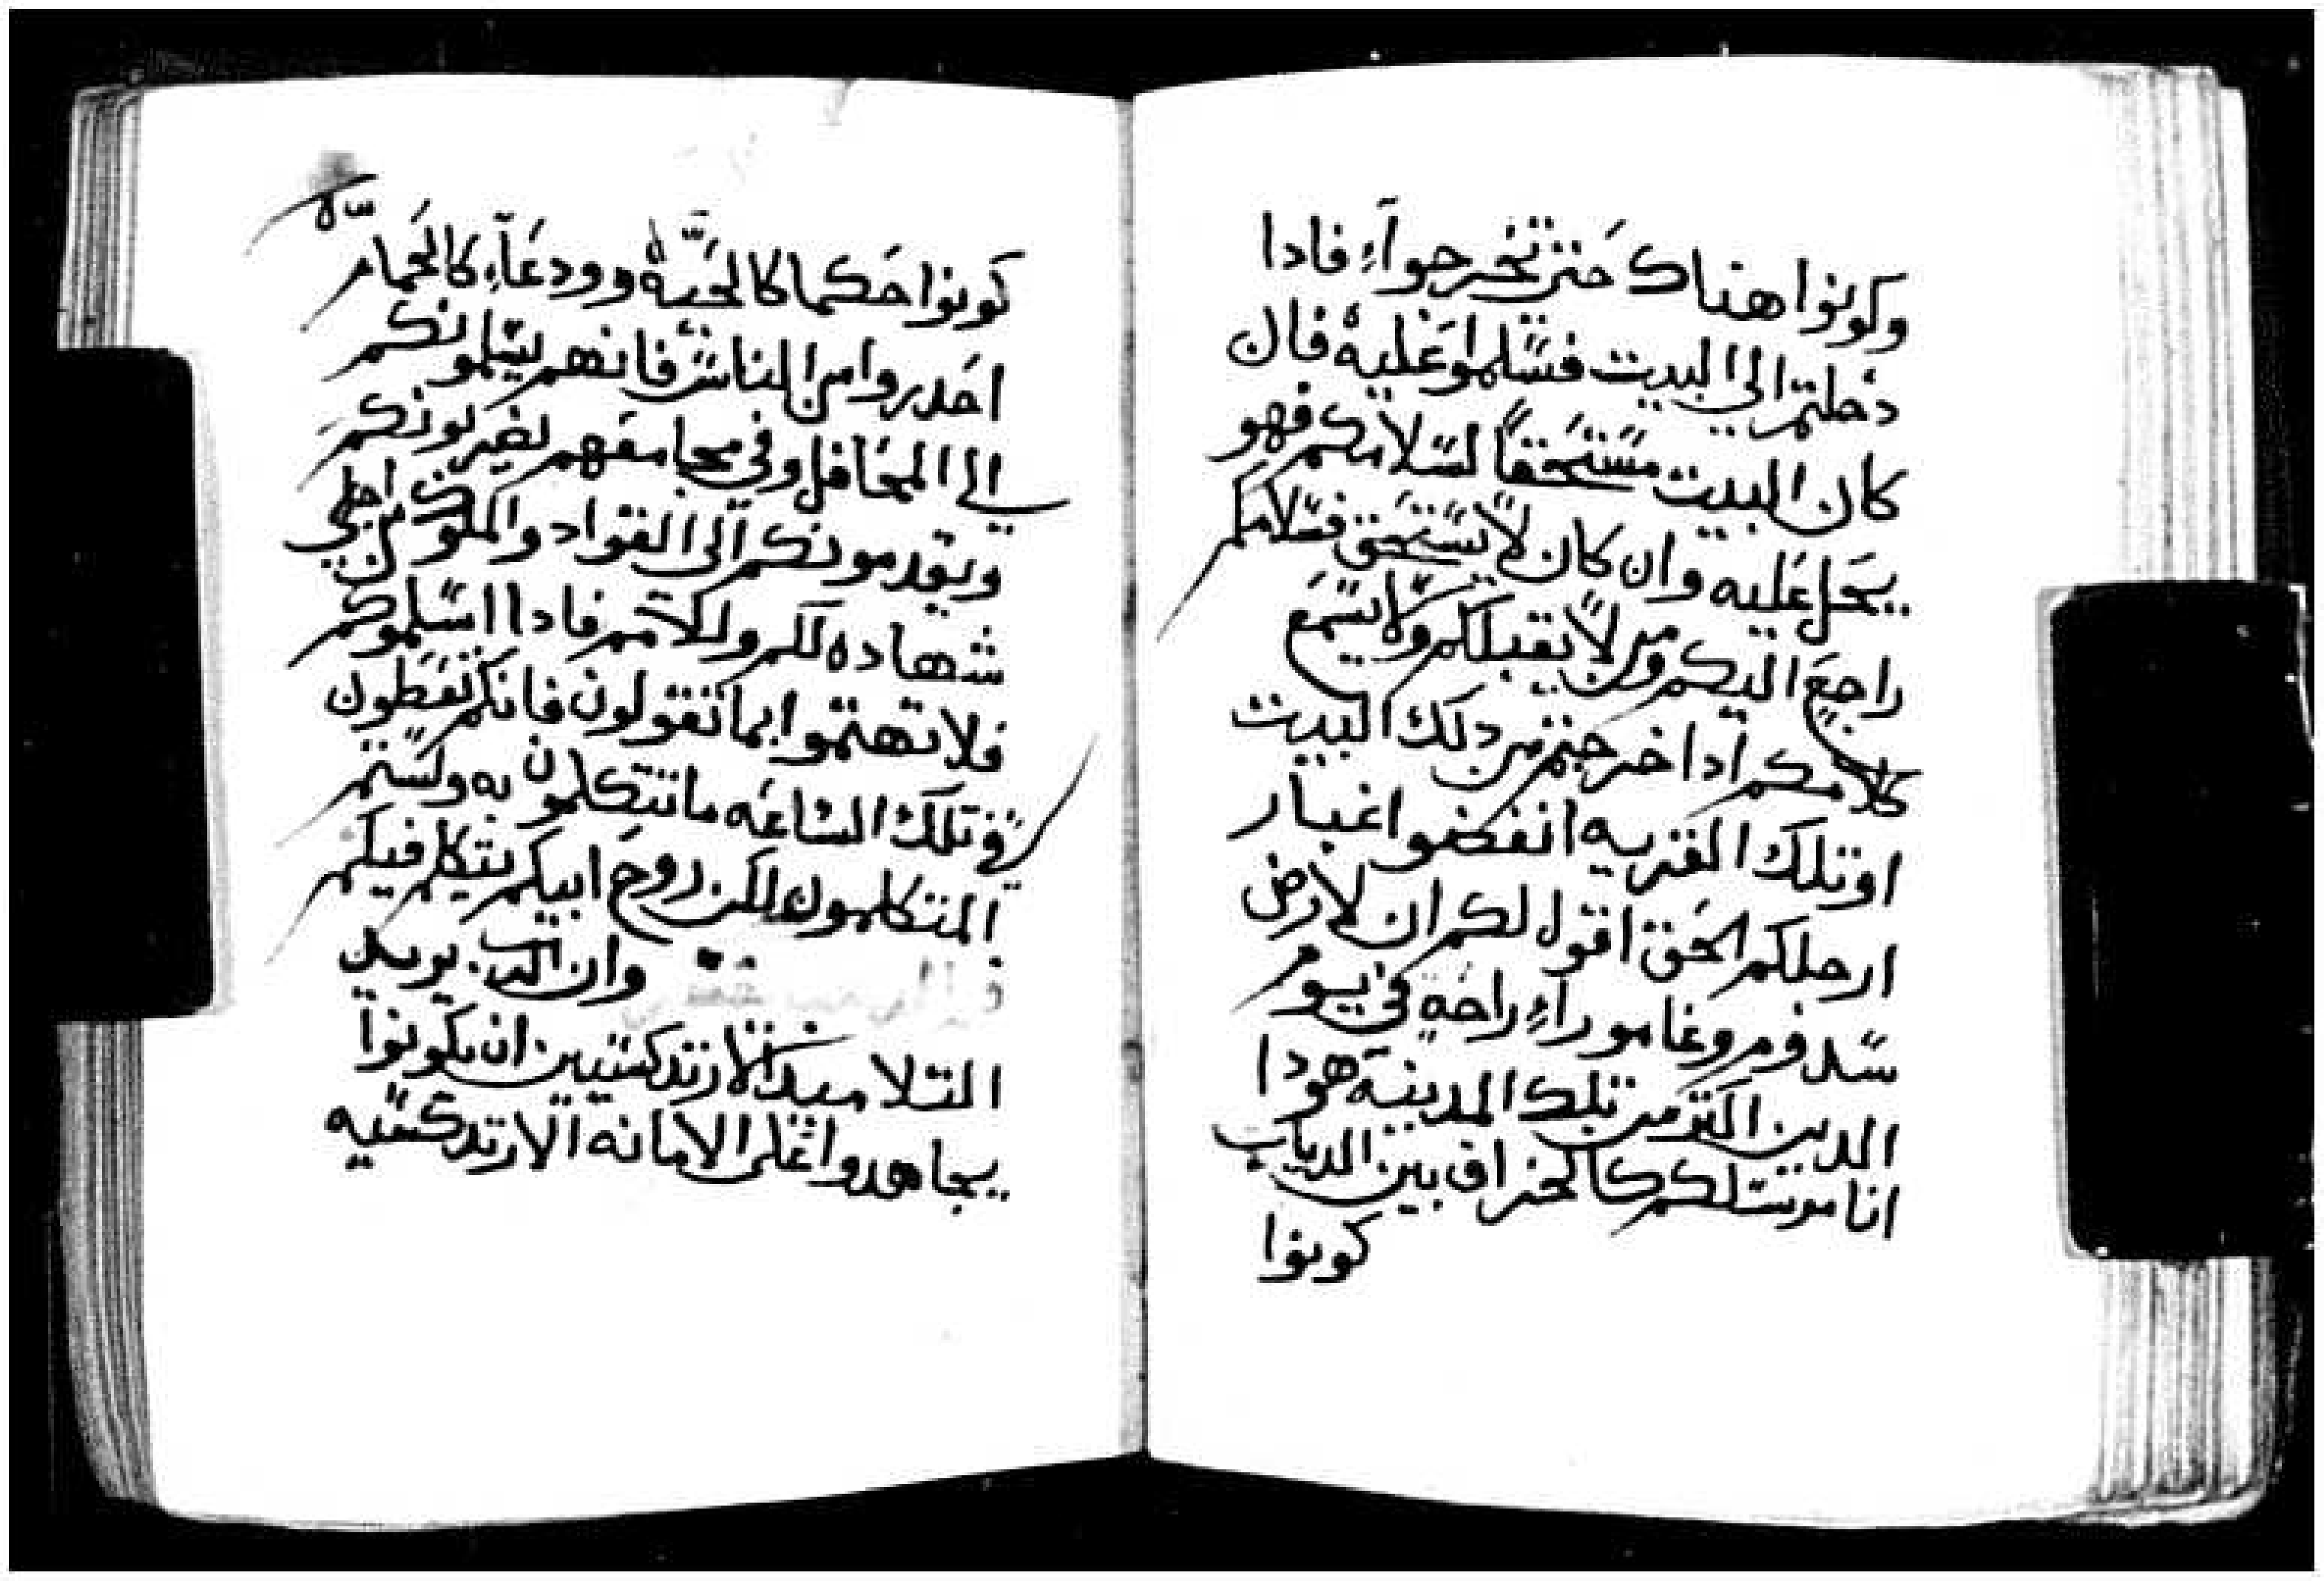 وكونوا هناك حتى تخرجوا فادا
دخلتم الى البيت فسلموا عليه فان
كان البيت مستحقاً لسلامكم فهو
يحل عليه وان كان لا يستحق فسلامكم
راجع اليكم ومن لا يقبلكم ولا يسمع
كلامكم ادا خرجتم من دلك البيت
او تلك القريه انفضوا غبار
ارجلكم الحق اقول لكم ان لارض
سدوم وغاموراء راحة في يوم
الدين اكتر من تلك المدينة هودا
انا مرسلكم كالخراف بين الدياب
كونوا
كونوا حكما كالحيه وودعاء كالحمام
احدروا من الناس فانهم يسلمونكم
الى المحافل وفي مجامعهم يضربونكم
ويقدمونكم الى القواد والملوك من اجلي
شهاده لكم وللامم فادا اسلموكم
فلا تهتموا بما تقولون فانكم تعطون
في تلك الساعه ما تتكلمون به ولستم
المتكلمون لكن روح ابيكم يتكلم فيكم
وان الرب يريد
التلاميد الارتدكسيين ان يكونوا
يجاهدوا على الامانه الارتدكسيه